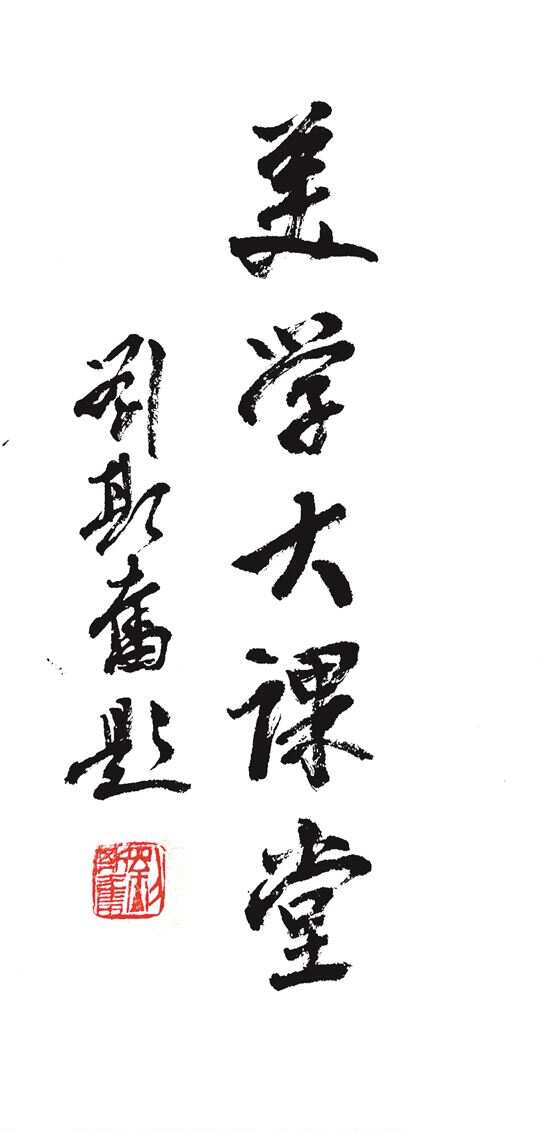 美学大课堂
刘斯奋题